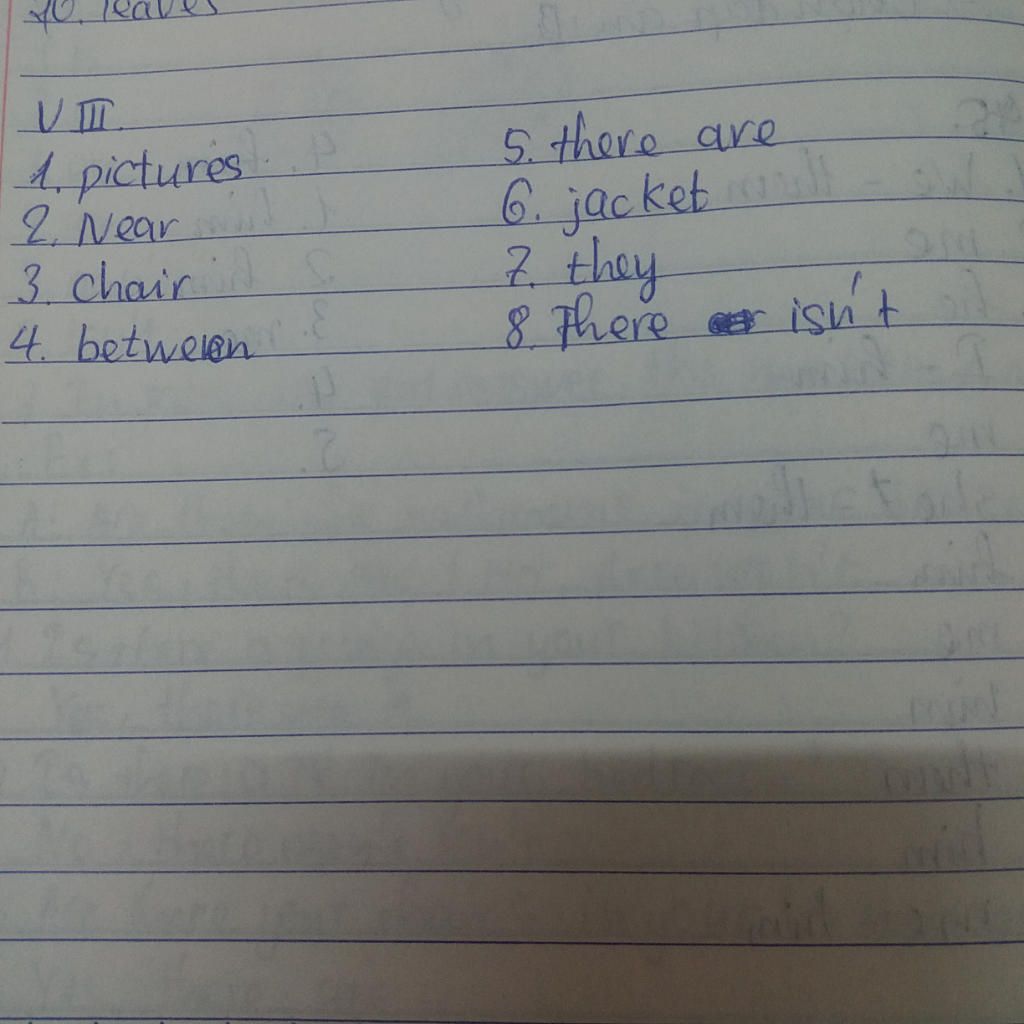 10. leaves
VIII.
1. pictures
2. Near
3. chair
4. between
5. there are
6. jacket
7. they
8. There isn't